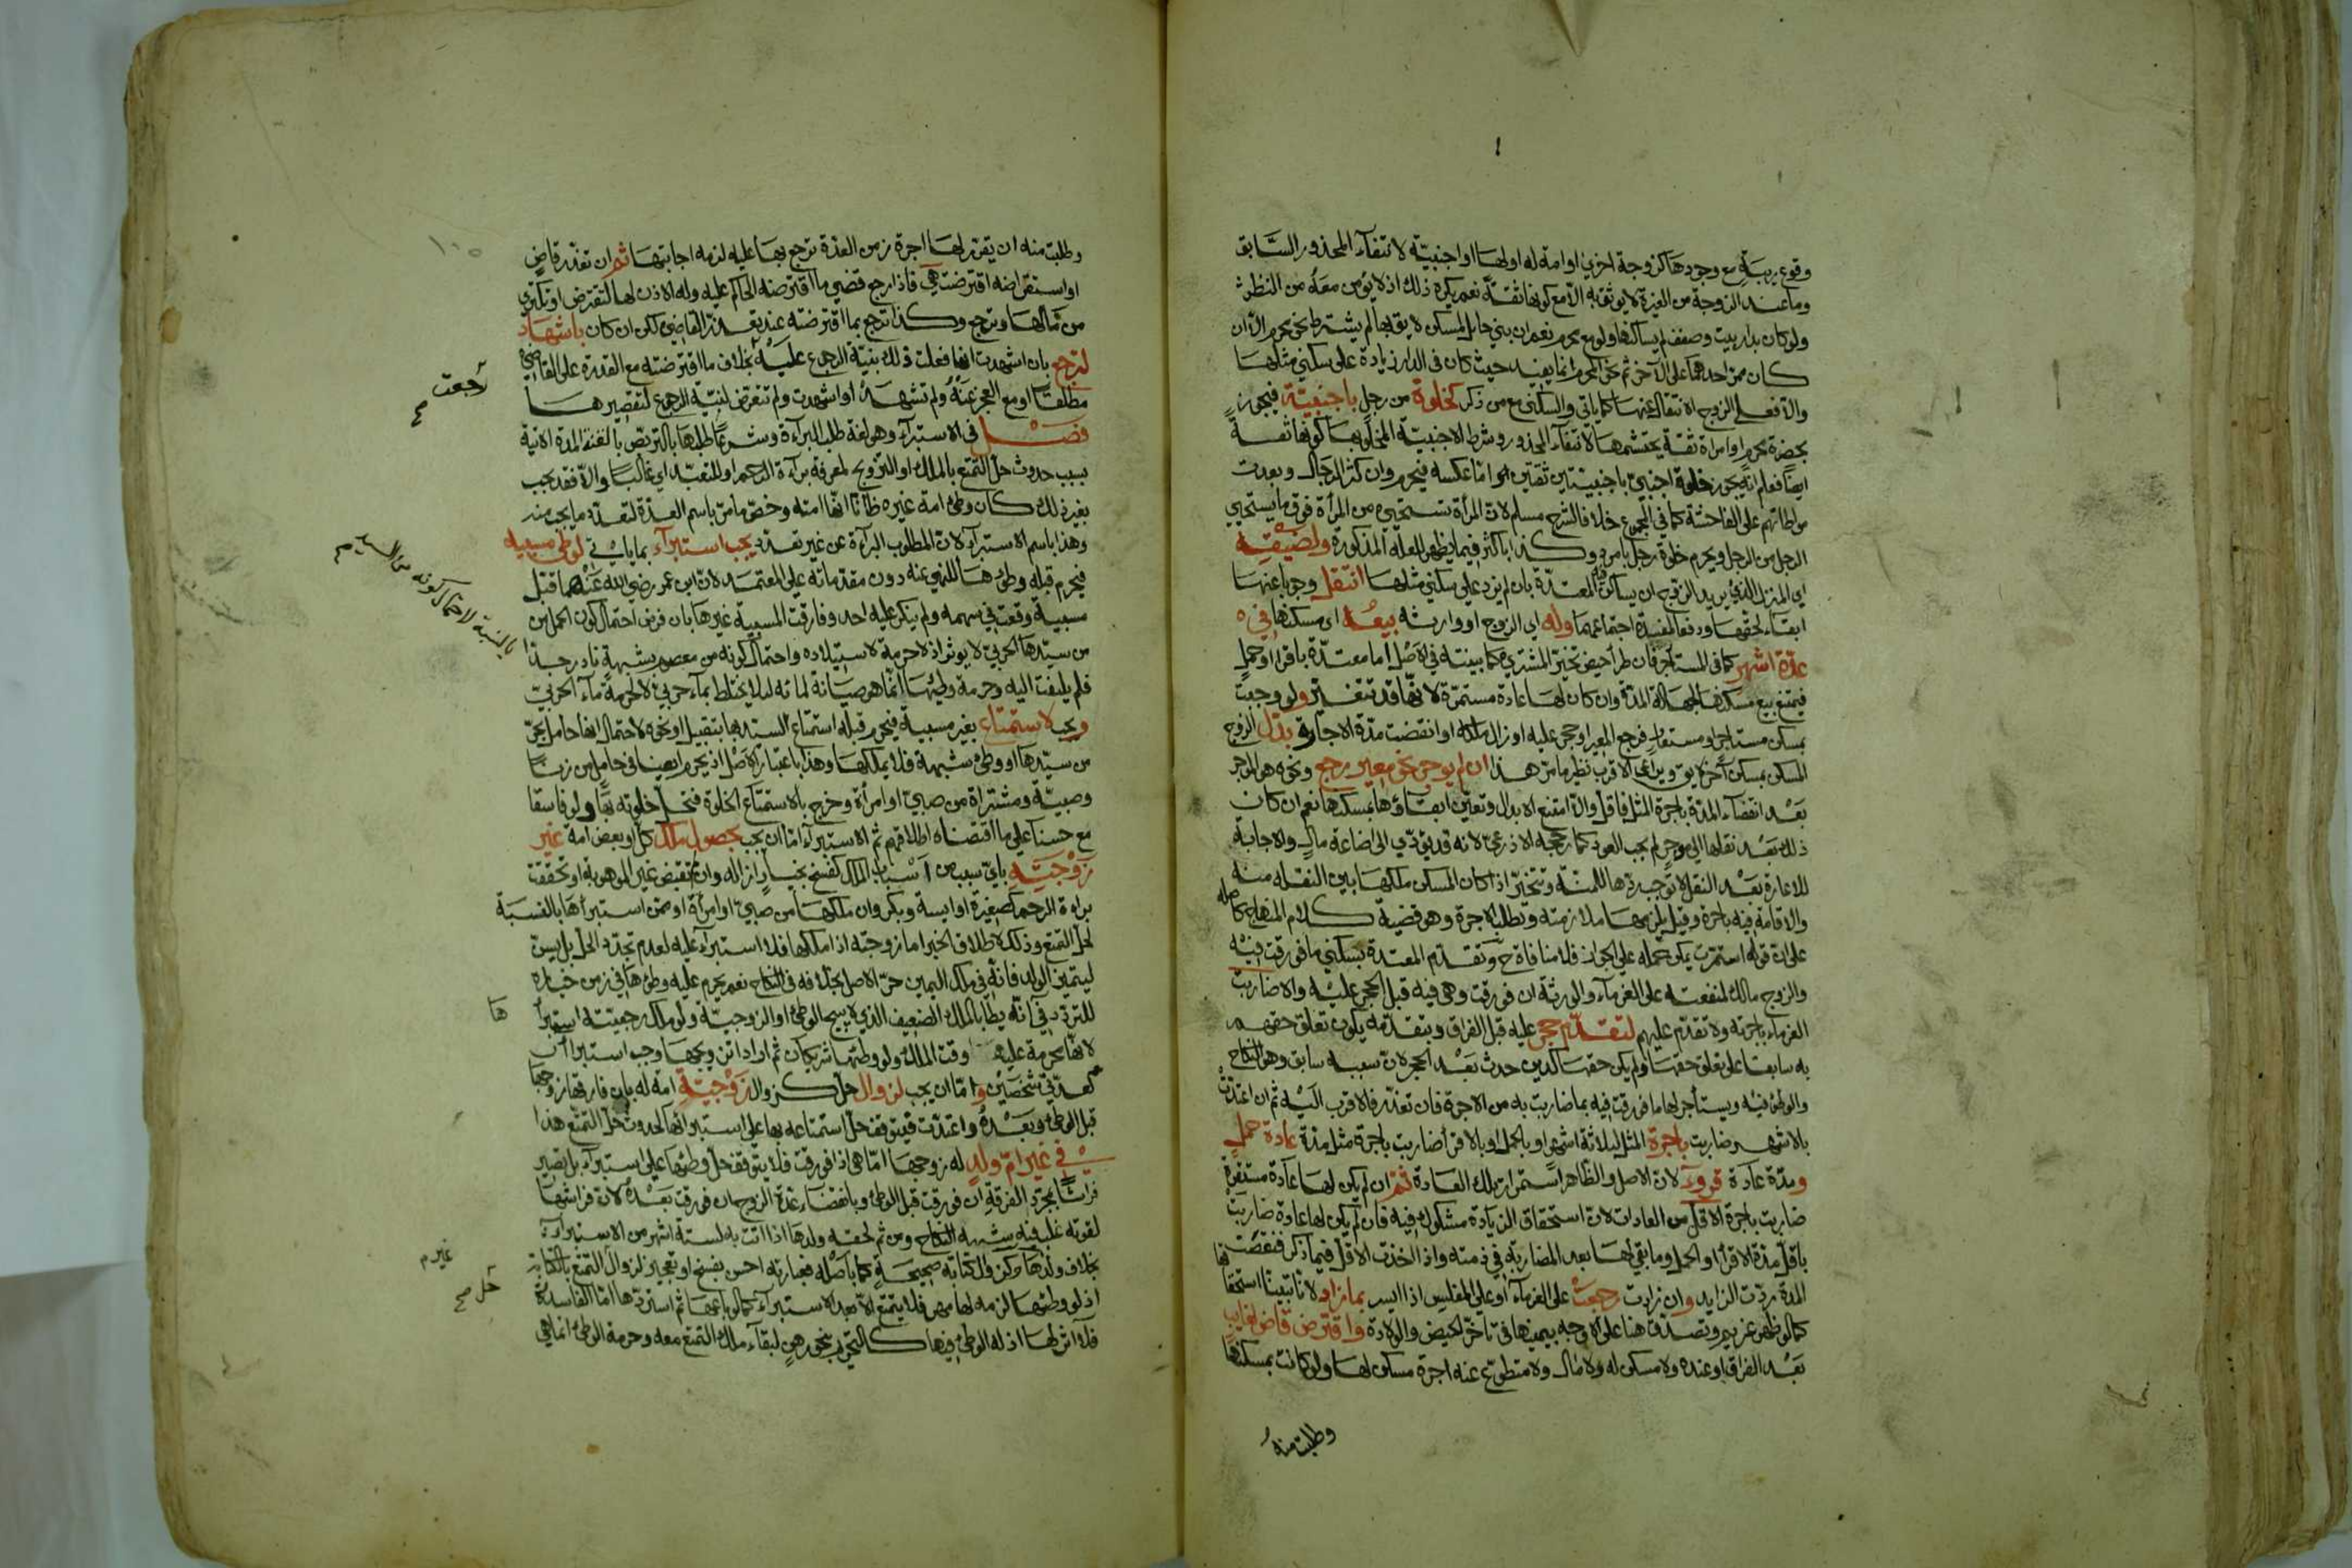 وقوع ريبة مع وجودها كزوجة اخرى او امة له او لها او اجنبية لانتفآء المحذور السابق
وما عند الزوجة من الغيرة لا يوثق به الا مع كونها ثقة نعم يكره ذلك اذ لا يؤمن معه من النظر
ولو كان بدار بيت وصفف لم يساكنها ولو مع محرم نعم ان بنى حايل المسكن لايق بها لم يشترط نحو محرم الا ان
كان ممر احدهما على الآخر ثم نحو المحرم انما يفيد حيث كان في الدار زيادة على سكنى مثلها
والا فعلى الزوج الانتقال عنها كما ياتي والسكنى مع من ذكر كخلوة من رجل باجنبية فيجوز
بحضرة محرم او امراة ثقة يحتشمها لانتفآء المحذور وشرط الاجنبية المخلو بها كونها ثقة
ايضا فعلم انه يجوز خلوة اجنبي باجنبيتين ثقتين اما عكسه فيحرم وان كثر الرجال وبعدت
مواطاتهم على الفاحشة كما في المجموع خلافا لشرح مسلم لان المرأة تستحيي من المرأة فوق ما يستحيي
الرجل من الرجل ويحرم خلوة رجل بامرد وكذا باكثر فيما يظهر للعلة المذكورة ولضيقه
اي المنزل الذي يريد الزوج ان يساكن فيه المعتدة بان لم يزد على سكنى مثلها انتقل وجوبا عنها
ابقاء لحقها ودفعا لمفسدة اجتماعهما وله اي الزوج او وارثه بيعه اي مسكنها في
عدة اشهر كما في المستأجر فان طرأ حيض تخير المشتري كما بينته في الاصل اما معتدة باقراء او حمل
فيمتنع بيع مسكنها لجهالة المدة وان كان لها عادة مستمرة لانها قد تتغير ولو وجبت
بمسكن مستاجر او مستعار فرجع المعير او حجر عليه او زال ملكه او انقضت مدة الاجارة بدل الزوج
المسكن بمسكن آخر لايق ويراعى الاقرب نظير ما مر هذا ان لم يوجر نحو معير رجع ونحوه هو الموجر
بعد انقضآء المدة باجرة المثل فاقل والا امتنع الابدال وتعين ابقاؤها بمسكنها نعم ان كان
ذلك بعد نقلها الى موجر لم يجب العود كما رجحه الاذرعي لانه قد يؤدي الى اضاعة مال والاجابة
للاعارة بعد النقل لا توجب ردها للمنة وتتخير اذا كان المسكن ملكها بين النقلة منه
والاقامة فيه باجرة وقيل يلزمها ملازمته وتطلب الاجرة وهو قضية كلام المنهاج كاصله
على ان قوله استمرت يمكن حمله على الجواز فلا منافاة ح وتقدم المعتدة بسكنى ما فورقت فيه
والزوج مالك لمنفعته على الغرمآء والورثة ان فورقت وهي فيه قبل الحجر عليه والا ضاربت
الغرماء باجرته ولا تقدم عليهم لتقدم حجر عليه قبل الفراق وبتقدمه يكون تعلق حقهم
به سابقا على تعلق حقها ولم يكن حقها كدين حدث بعد الحجر لان سببه سابق وهو النكاح
والوطئ فيه ويستأجر لها ما فورقت فيه بما ضاربت به من الاجرة فان تعذر فالاقرب اليه ثم ان اعتدت
بالاشهر ضاربت باجرة المثل لثلاثة اشهر او بالحمل او بالاقراء ضاربت باجرة مثل مدة عادة حمل
ومدة عادة قروء لان الاصل والظاهر استمرار تلك العادة ثم ان لم يكن لها عادة مستقرة
ضاربت باجرة الاقل من العادات لان استحقاق الزيادة مشكوك فيه فان لم يكن لها عادة ضاربت
باقل مدة الاقرا او الحمل وما بقي لها بعد المضاربة في ذمته واذا اخذت الاقل فيما ذكر فنقصت
المدة ردت الزايد وان زادت رجعت على الغرمآء او على المفلس اذا ايسر بما زاد لانا تبينا استحقاقها
كما لو ظهر غريم وتصدق هنا على الاوجه بيمينها في تاخر الحيض والولادة واقترض قاض لغايب
بعد الفراق او عنده ولا مسكن له ولا مال ولا متطوع عنه اجرة مسكن لها ولو كانت بمسكنها
وطلبت منه
وطلبت منه ان يقرر لها اجرة زمن العدة ترجع بها عليه لزمه اجابتها ثم ان تعذر قاض
او استقراضه اقترضت هي فاذا رجع قضى ما اقترضه الحاكم عليه وله الاذن لها لتقترض او تكتري
من مالها وترجع وكذا ترجع بما اقترضته عند تعذر القاضي لكن ان كان باشهاد
لترجع بان اشهدت انها فعلت ذلك بنية الرجوع عليه بخلاف ما اقترضته مع القدرة على القاضي
مطلقا او مع العجز عنه ولم تشهد او اشهدت ولم تتعرض لنية الرجوع لتقصيرها
رجعت صح
فصل في الاستبرآء وهو لغة طلب البراءة وشرعا طلبها بالتربص بالغة المدة الاتية
بسبب حدوث حل التمتع بالملك او التزويج لمعرفة براءة الرحم او للتعبد اي غالبا والا فقد يجب
بغير ذلك كان وطئ امة غيره ظانا انها امته وخص ما مر باسم العدة لتعدد ما يجب منه
وهذا باسم الاستبرآء لان المطلوب البراءة عن غير تعدد يجب استبرآء بما ياتي لوطى مسبية
فيحرم قبله وطئها للنهي عنه دون مقدماته على المعتمد لان ابن عمر رضي الله عنهما قبل
مسبية وقعت في سهمه ولم ينكر عليه احد وفارقت المسبية غيرها بان فرض احتمال كون الحمل من
من سيدها الحربي لا يوثر اذ لا حرمة لاستيلاده واحتمال كونه من معصوم بشبهة نادر جدا
بالنسبة لاحتمال كونه من السيد صح
فلم يلتفت اليه وحرمة وطئها انما هو صيانة لمائه ليلا يختلط بمآء حربي لا لحرمة مآء الحربي
ويجب لاستمتاع بغير مسبية فيحرم قبله استمتاع السيد بها بتقبيل او نحوه لاحتمال انها حامل بحر
من سيدها او وطئ شبهة فلا يملكها وهذا باعتبار الاصل اذ يحرم ايضا في حامل من زنا
وصبية ومشتراة من صبي او امرأة وخرج بالاستمتاع الخلوة فتحل خلوته بها ولو فاسقا
مع حسنا على ما اقتضاه اطلاقهم ثم الاستبرآء اما ان يجب بحصول ملك كل او بعض امة غير
زوجيته باي سبب من اسباب الملك كفسخ بخيار او اقالة وان لم تقبض غير الموهوبة او تحققت
براءة الرحم كصغيرة او ايسة وبكر وان ملكها من صبي او امرأة او ممن استبراها بالنسبة
لحل التمتع وذلك لاطلاق الخبر اما زوجته اذا ملكها فلا استبرآء عليه لعدم تجدد الحل بل يسن
ليتميز الولد فانه في ملك اليمين حر الاصل بخلافه في النكاح نعم يحرم عليه وطئها في زمن خياره
للتردد في انه يطأ بالملك الضعيف الذي لا يبيح الوطئ او الزوجية ولو ملك رجعيته استبرأ
ها
لانها محرمة عليه وقت الملك ولو وطئها شريكان ثم اراد تزويجها وجب استبراآن
كعدتي شخصين واما ان يجب لزوال حل كزوال زوجية امة له بان فارقها زوجها
قبل الوطئ وبعده واعتدت فيتوقف حل استمتاعه بها على استبرائها لحدوث حل التمتع هذا
في غير ام ولد له زوجها اما هي اذا فورقت فلا يتوقف حل وطئها على استبرآء بل تصير
فراشا بمجرد الفرقة ان فورقت قبل الوطئ وبانقضاء عدة الزوج ان فورقت بعده لان فراشها
لقوته غلب فيه شبهة النكاح ومن ثم لحقه ولدها اذا اتت به لستة اشهر من الاستبراء
بخلاف ولدها وكزوال كتابة صحيحة كما باصله فعبارته احسن بفسخ او تعجيز لزوال التمتع بالكتابة
غيرم
حل صح
اذ لو وطئها لزمه لها مهر فلا يتمتع الا بعد الاستبرآء كما لو باعها ثم استردها اما الفاسدة
فلا اثر لها اذ له الوطئ فيها كالتحريم بنحو رهن لبقآء ملك التمتع معه وحرمة الوطئ انما هي